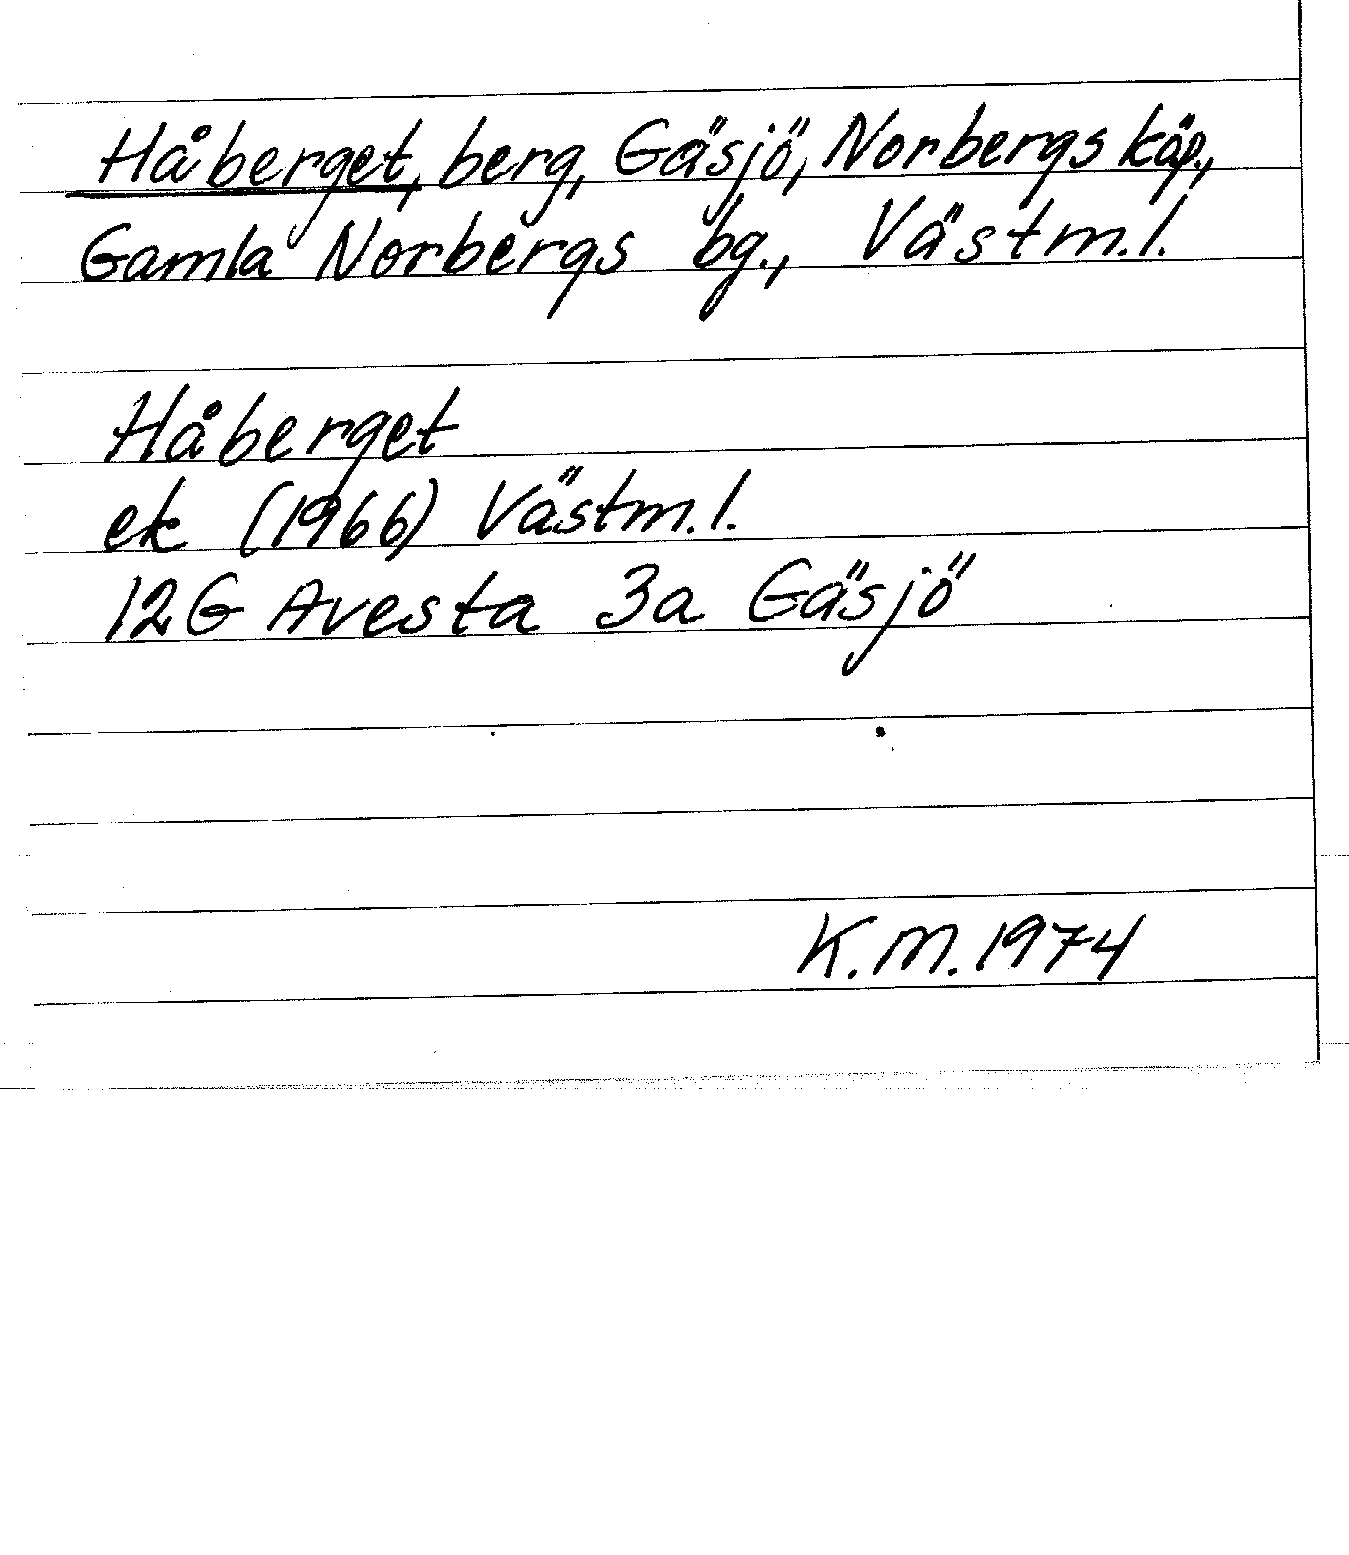 Håberget, berg, Gäsjö, Norbergs köp.,
Gamla Norbergs bg., Västm.l.
Håberget
ek (1966) Västm.l.
12G Avesta 3a Gäsjö
K.M. 1974